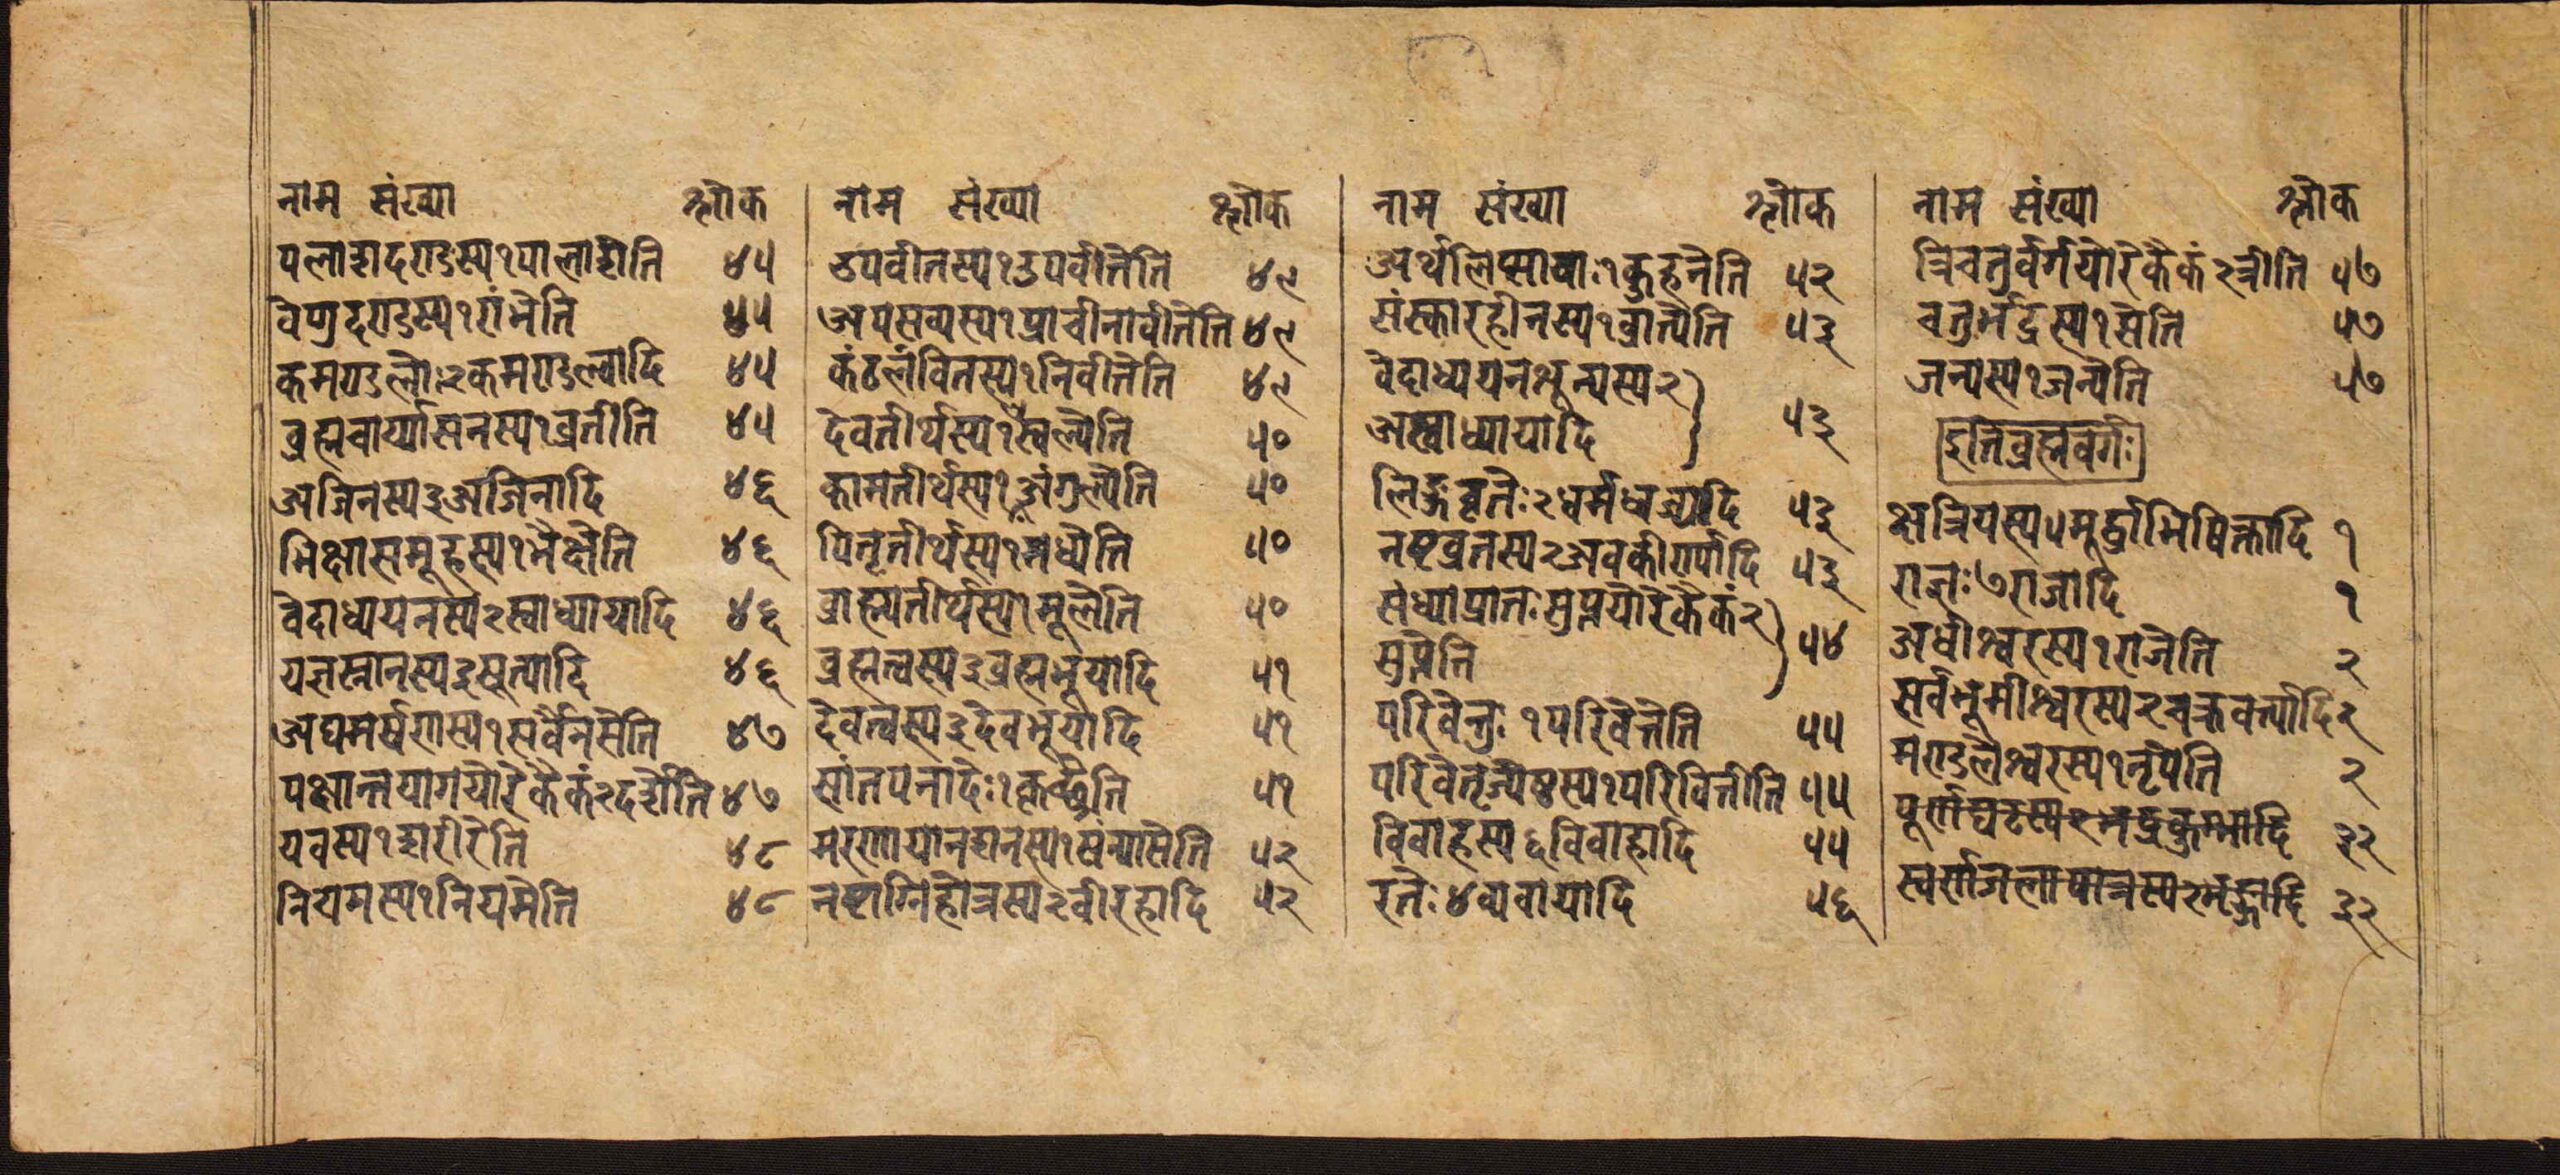 नाम संख्या श्लोक
पलाशदण्डस्य १ पालाशेति ४५
वेणुदण्डस्य १ रांभेति ४५
कमण्डलोः २ कमण्डल्वादि ४५
ब्रह्मचार्य्यासनस्य १ व्रतीति ४५
अजिनस्य ३ अजिनादि ४६
भिक्षासमूहस्य १ भैक्षेति ४६
वेदाध्ययनस्य २ स्वाध्यायादि ४६
यज्ञस्नानस्य ३ सुत्यादि ४६
अघमर्षणस्य १ सर्वैनसेति ४७
पक्षान्तयागयोरेकैकं २ दर्शेति ४७
यवस्य १ शरीरेति ४८
नियमस्य १ नियमेति ४८
नाम संख्या श्लोक
उपवीतस्य १ उपवीतेति ४९
अपसव्यस्य १ प्राचीनावीतेति ४९
कंठलंवितस्य १ निवीतेति ४९
देवतीर्थस्य १ स्वल्पेति ५०
कामतीर्थस्य १ अंगुल्येति ५०
पितृतीर्थस्य १ मध्येति ५०
ब्राह्म्यतीर्थस्य १ मूलेति ५०
ब्रह्मत्वस्य ३ ब्रह्मभूयादि ५१
देवत्वस्य ३ देवभूयादि ५१
सांतपनादेः १ कृच्छ्रेति ५१
मरणायानशनस्य १ संन्यासेति ५२
नष्टाग्निहोत्रस्य २ वीरहादि ५२
नाम संख्या श्लोक
अर्थलिप्सायाः १ कुहनेति ५२
संस्कारहीनस्य १ व्रात्येति ५३
वेदाध्ययनशून्यस्य २
अस्वाध्यायादि ५३
लिङ्गवृतेः २ धर्मध्वज्यादि ५३
नष्टव्रतस्य २ अवकीर्ण्यादि ५३
संध्याप्रातःसुप्तयोरेकैकं २
सुप्तेति ५४
परिवेत्तुः १ परिवेत्तेति ५५
परिवेतृज्येष्ठस्य १ परिवित्तीति ५५
विवाहस्य ६ विवाहादि ५५
रतेः ४ व्यवायादि ५६
नाम संख्या श्लोक
त्रिचतुर्वर्गयोरेकैकं २ त्रीति ५७
चतुर्भद्रस्य १ सेति ५७
जन्यस्य १ जन्येति ५७
इतिब्रह्मवर्गः
क्षत्रियस्य ५ मूर्द्धाभिषिक्तादि १
राज्ञः ७ राजादि १
अधीश्वरस्य १ राजेति २
सर्वभूमीश्वरस्य २ चक्रवर्त्त्यादि २
मण्डलेश्वरस्य १ नृपेति २
पूर्णघटस्य २ भद्रकुम्भादि ३२
स्वर्णजलापात्रस्य २ भृङ्गादि ३२